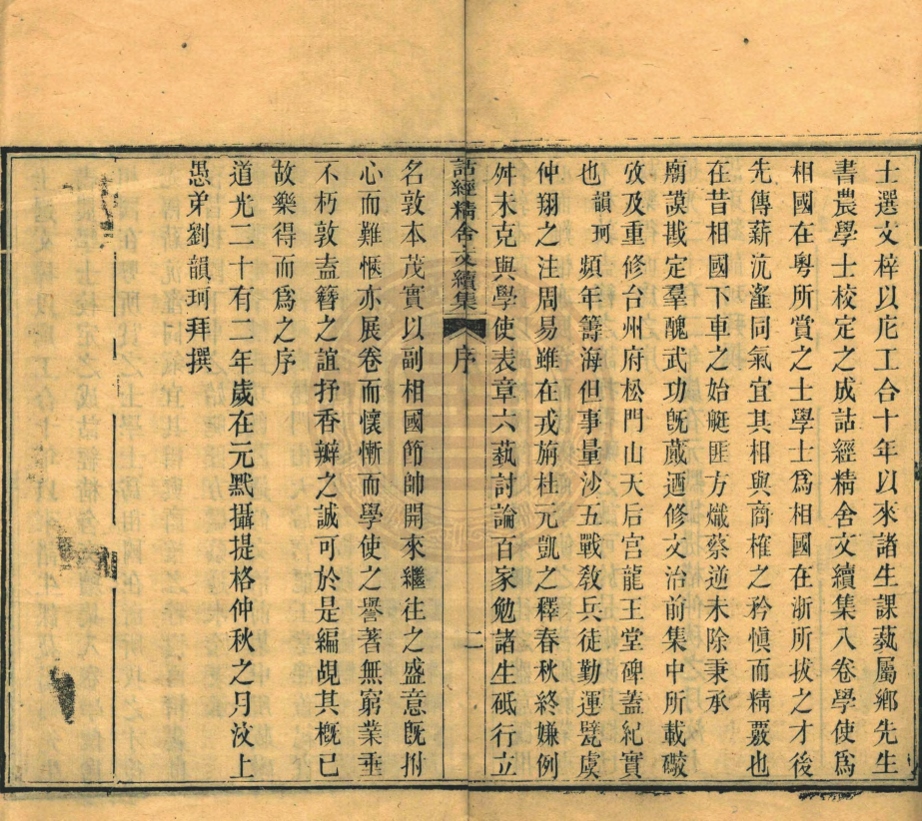 士選文梓以庀工合十年以來諸生課蓺屬鄉先生
書農學士校定之成詁經精舍文續集八卷學使爲
相國在粵所賞之士學士爲相國在浙所拔之才後
先傳薪沆瀣同氣宜其相與商榷之矜愼而精覈也
在昔相國下車之始艇匪方熾蔡逆未除秉承
廟謨戡定羣醜武功旣蕆迺修文治前集中所載礮
攷及重修台州府松門山天后宮龍王堂碑蓋紀實
也韻珂頻年籌海但事量沙五戰敎兵徒勤運甓虞
仲翔之注周易雖在戎旃杜元凱之釋春秋終嫌例
舛未克與學使表章六蓺討論百家勉諸生砥行立
詁經精舍文續集 序 二
名敦本茂實以副相國節帥開來繼往之盛意旣拊
心而難愜亦展卷而懷慚而學使之譽著無窮業垂
不朽敦盍簪之誼抒香瓣之誠可於是編覘其槪已
故樂得而爲之序
道光二十有二年歲在元黓攝提格仲秋之月汶上
愚弟劉韻珂拜撰